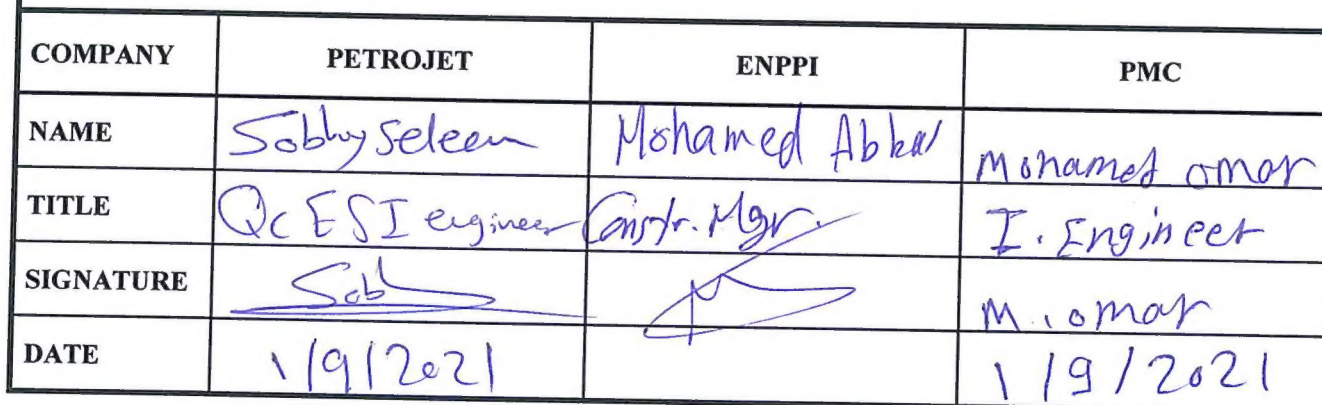 COMPANY PETROJET ENPPI PMC
NAME Sobhy Seleem Mohamed Mohamed omar
TITLE Qc E&I engineer Constr. Mgr. I. Engineer
SIGNATURE Sob M. omar
DATE 1/9/2021 1/9/2021